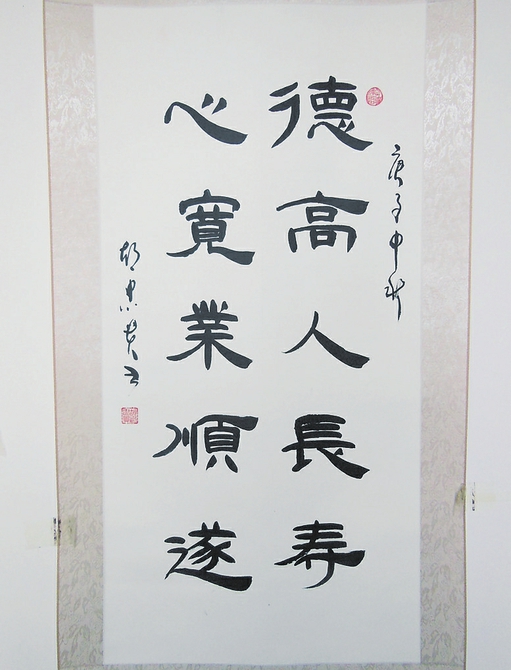 庚子中秋
德高人長寿
心寬業順遂